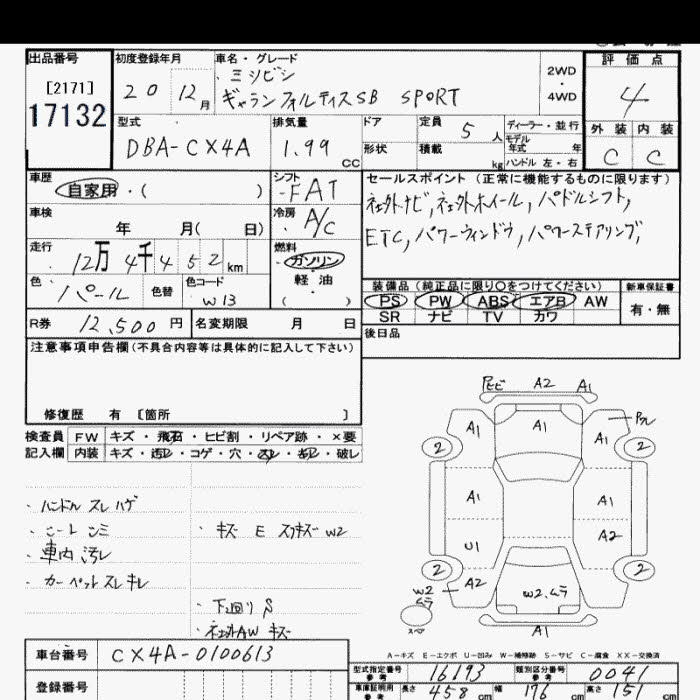 出品番号 初度登録年月 車名・グレード 評価点
[2171] 20 12月 ミツビシ 2WD
17132 ギャランフォルティスSB SPORT ・ 4WD 4
型式 排気量 ドア 定員 5人 ディーラー・並行 外装 内装
DBA-CX4A 1.99 CC 形状 積載 kg モデル年式 年 ハンドル 左・右 C C
車歴 シフト セールスポイント(正常に機能するものに限ります)
自家用・( ) FAT 社外ナビ,社外ホイール,パドルシフト,
車検 冷房 ETC,パワーウィンドウ,パワーステアリング,
年 月( 日) A/C
走行 燃料
12万4千452km ガソリン
色 色替 色コード 軽油
パール W13 ( )
装備品(純正品に限り○をつけてください) 新車保証書
PS PW ABS エアB AW 有・無
SR ナビ TV カワ
R券 12,500円 名変期限 月 日 後日品
注意事項申告欄(不具合内容等は具体的に記入して下さい)
修復歴 有 [箇所 ]
検査員 FW キズ・飛石・ヒビ割・リペア跡・×要
記入欄 内装 キズ・汚レ・コゲ・穴・スレ・キレ・破レ
・ハンドル スレ ハゲ
・シート シミ ・キズ E スリキズ W2
・車内 汚レ
・カーペット スレ キレ
・下回り S
・社外AW キズ
A2 A1
A1 A1 A1
2 2
A1 A1
A2
U1
2 2
W2 A2 W2.ムラ
ムラ
スペア
A1
A-キズ E-エクボ U-凹み W-補修跡 S-サビ C-腐食 XX-交換済
車台番号 CX4A-0100613
型式指定番号 参考 16193 類別区分番号 参考 0041
登録番号 車庫証明用 参考 長さ 458 cm 幅 176 cm 高さ 151 cm